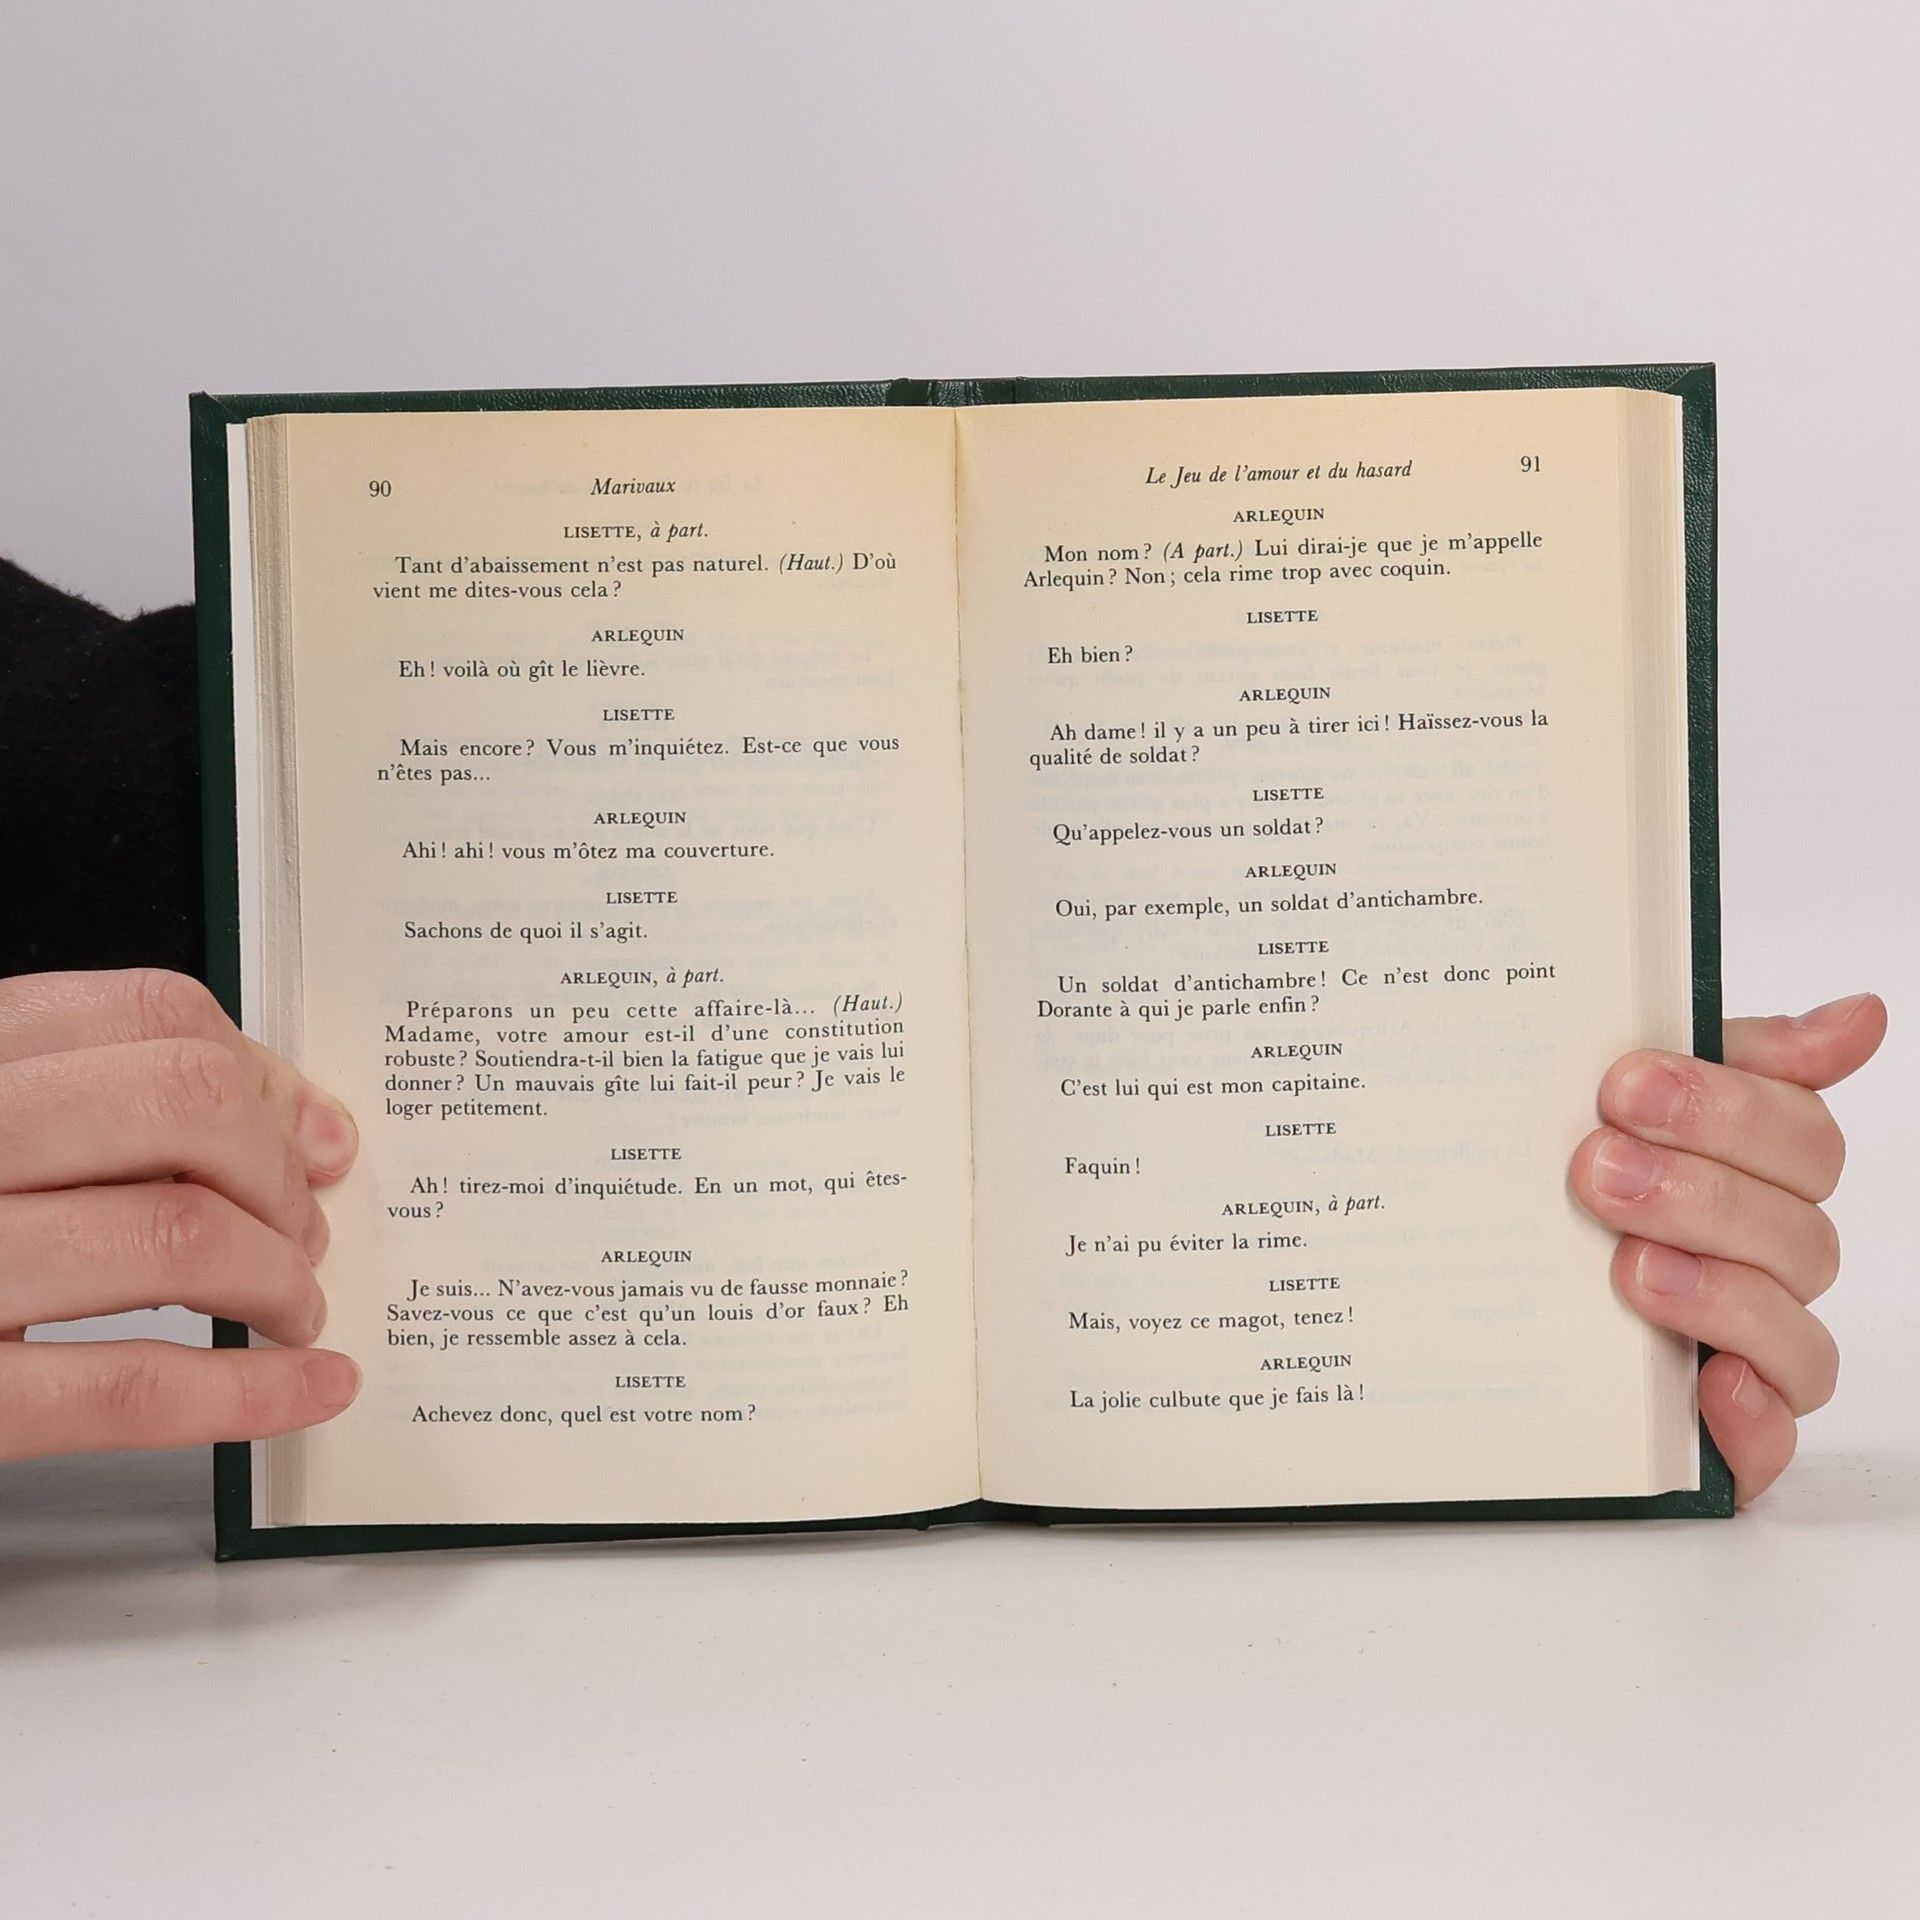 90
Marivaux
LISETTE, à part.
Tant d'abaissement n'est pas naturel. (Haut.) D'où
vient me dites-vous cela ?
ARLEQUIN
Eh ! voilà où gît le lièvre.
LISETTE
Mais encore ? Vous m'inquiétez. Est-ce que vous
n'êtes pas...
ARLEQUIN
Ahi ! ahi ! vous m'ôtez ma couverture.
LISETTE
Sachons de quoi il s'agit.
ARLEQUIN, à part.
Préparons un peu cette affaire-là... (Haut.)
Madame, votre amour est-il d'une constitution
robuste ? Soutiendra-t-il bien la fatigue que je vais lui
donner ? Un mauvais gîte lui fait-il peur ? Je vais le
loger petitement.
LISETTE
Ah ! tirez-moi d'inquiétude. En un mot, qui êtes-
vous ?
ARLEQUIN
Je suis... N'avez-vous jamais vu de fausse monnaie ?
Savez-vous ce que c'est qu'un louis d'or faux ? Eh
bien, je ressemble assez à cela.
LISETTE
Achevez donc, quel est votre nom ?
Le Jeu de l'amour et du hasard
91
ARLEQUIN
Mon nom ? (A part.) Lui dirai-je que je m'appelle
Arlequin ? Non ; cela rime trop avec coquin.
LISETTE
Eh bien ?
ARLEQUIN
Ah dame ! il y a un peu à tirer ici ! Haïssez-vous la
qualité de soldat ?
LISETTE
Qu'appelez-vous un soldat ?
ARLEQUIN
Oui, par exemple, un soldat d'antichambre.
LISETTE
Un soldat d'antichambre ! Ce n'est donc point
Dorante à qui je parle enfin ?
ARLEQUIN
C'est lui qui est mon capitaine.
LISETTE
Faquin !
ARLEQUIN, à part.
Je n'ai pu éviter la rime.
LISETTE
Mais, voyez ce magot, tenez !
ARLEQUIN
La jolie culbute que je fais là !